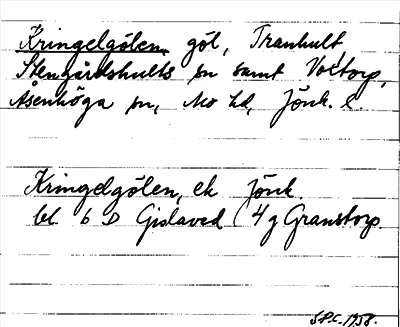 Kringelgölen, göl, Tranhult
Stengårdshults sn samt Voltorp,
Åsenhöga sn, Mo hd, Jönk. l.
Kringelgölen, ek Jönk
bl 6 D Gislaved (4 g Granstorp.
1958.